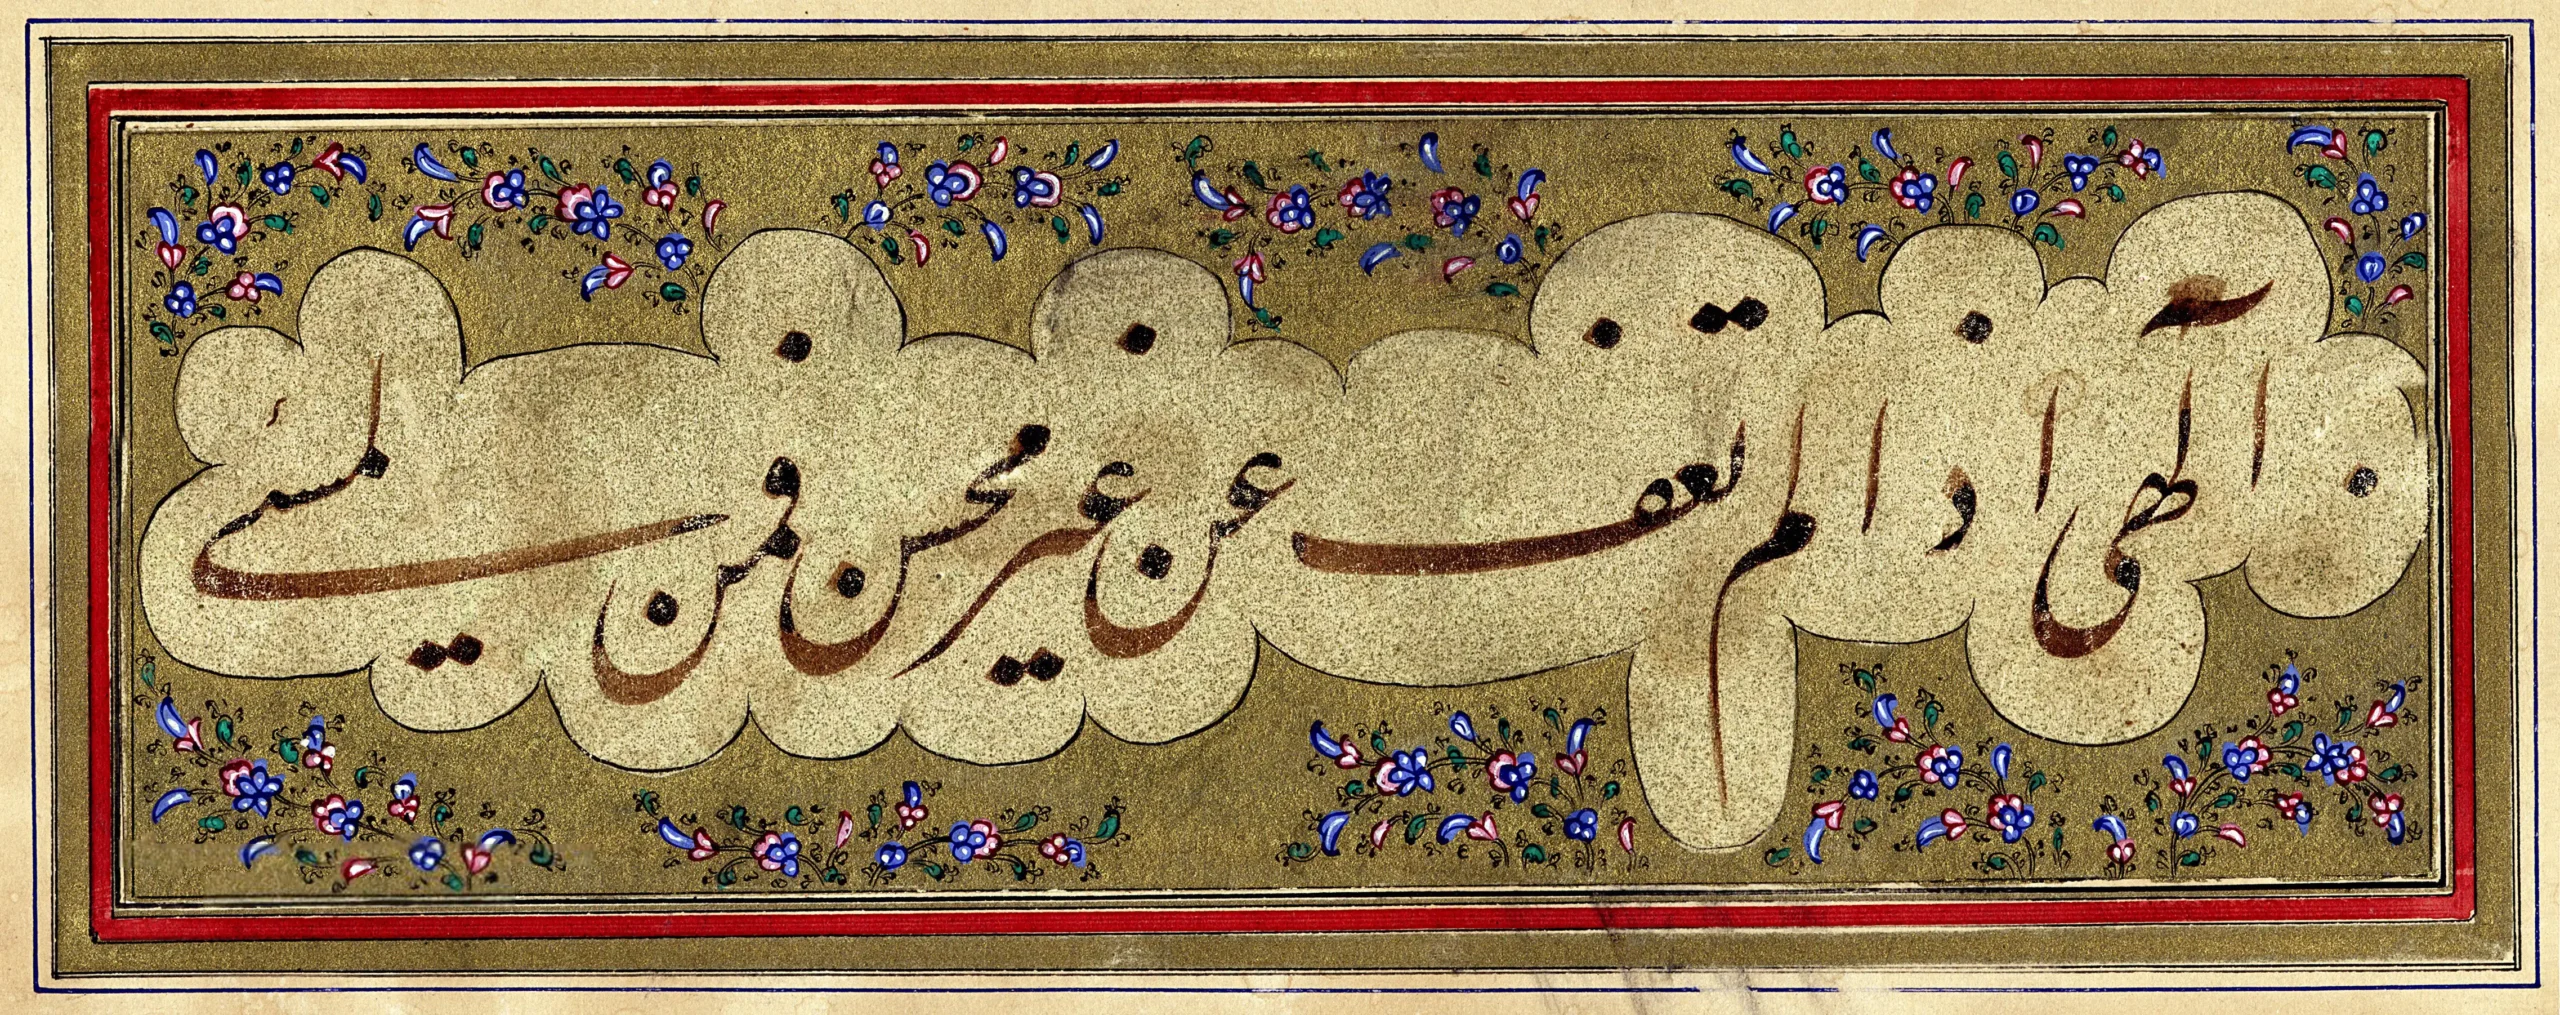 الهی اذا لم تعف عن غیر محسن فمن لمسیئ